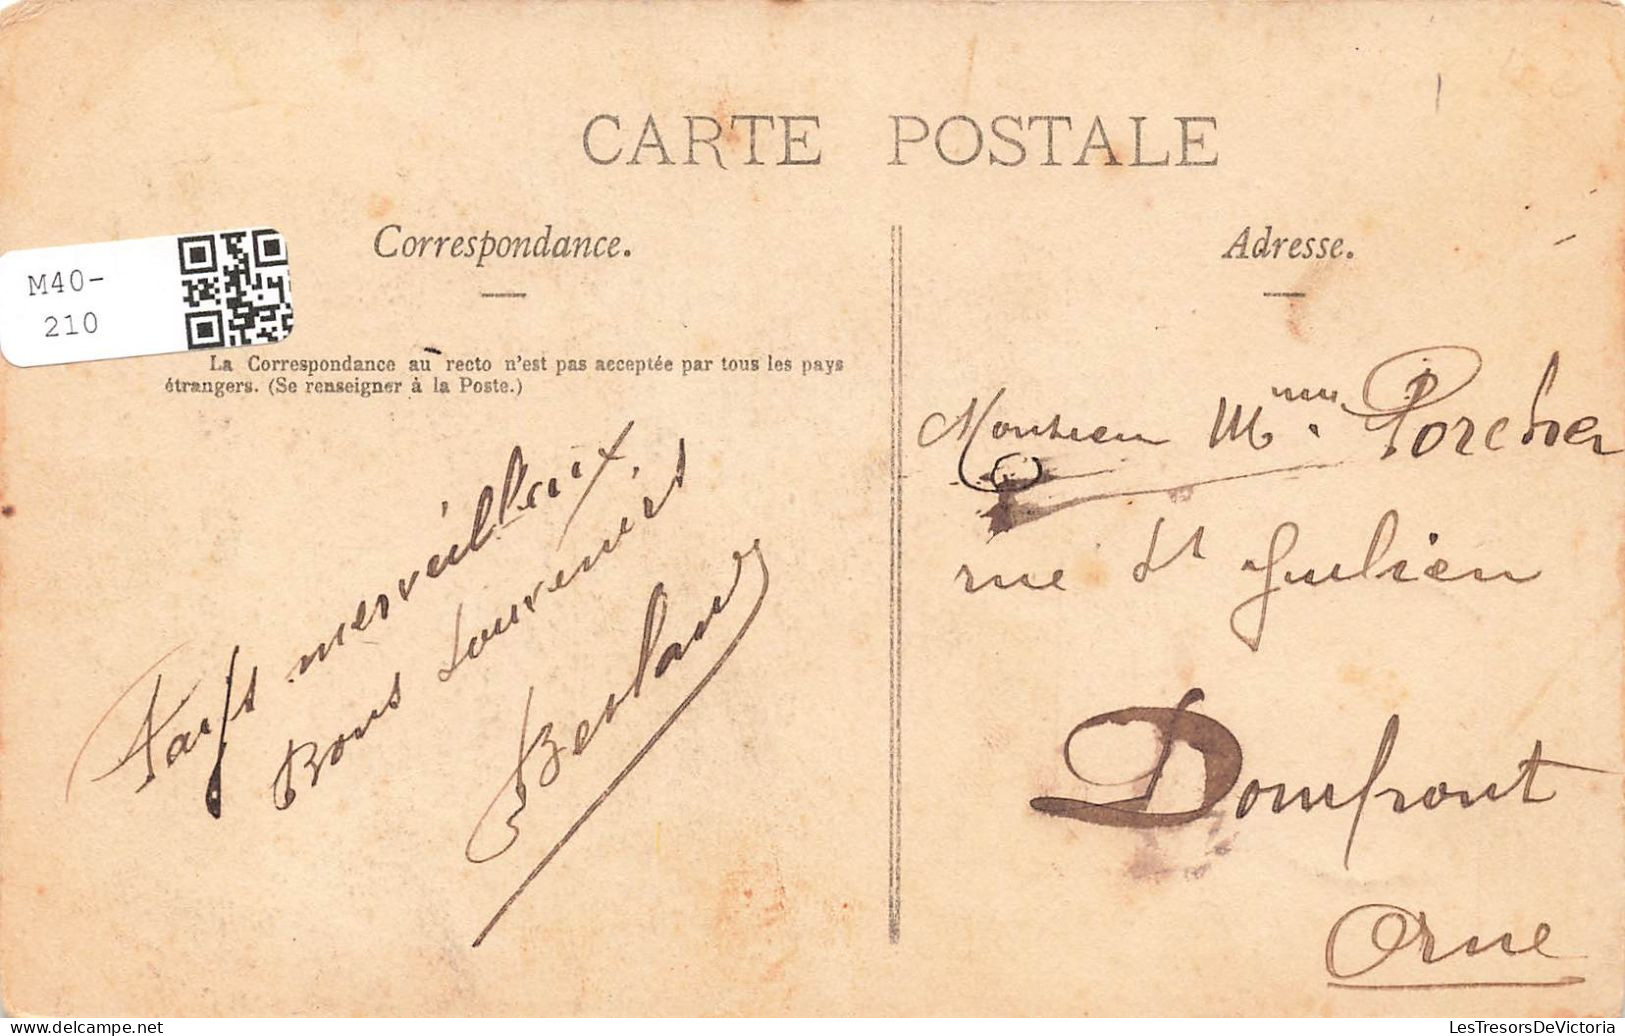 CARTE POSTALE
Correspondance.
Adresse.
M40-
210
La Correspondance au recto n'est pas acceptée par tous les pays
étrangers. (Se renseigner à la Poste.)
Pays merveilleux,
Bons souvenirs
Monsieur Mme Porcher
rue St Julien
Domfront
Orne
LesTresorsDeVictoria